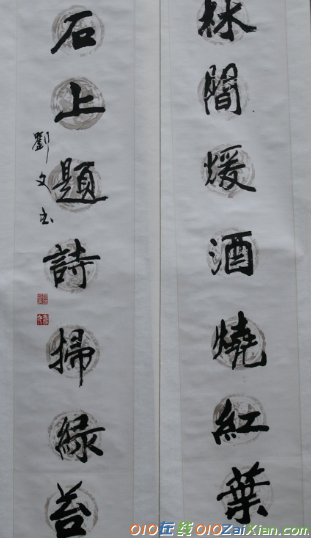 林間煖酒燒紅葉
石上題詩掃緑苔
劉文書
010在线010ZaiXian.com